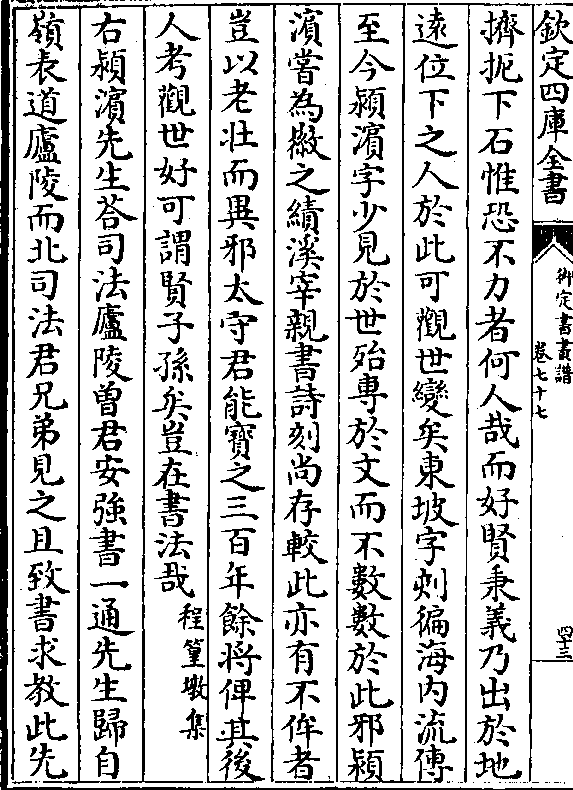 欽定四庫全書
御定書畫譜
卷七十七
四十三
擠扼下石惟恐不力者何人哉而好賢秉義乃出於地
逺位下之人於此可觀世變矣東坡字刻徧海内流傳
至今潁濱字少見於世殆専於文而不數數於此邪潁
濵嘗為㣲之績溪宰親書詩刻尚存較此亦有不侔者
豈以老壯而異邪太守君能寳之三百年餘將俾其後
人考觀世好可謂賢子孫矣豈在書法哉程篁墩集
右潁濵先生荅司法廬陵曽君安強書一通先生歸自
嶺表道廬陵而北司法君兄弟見之且致書求教此先